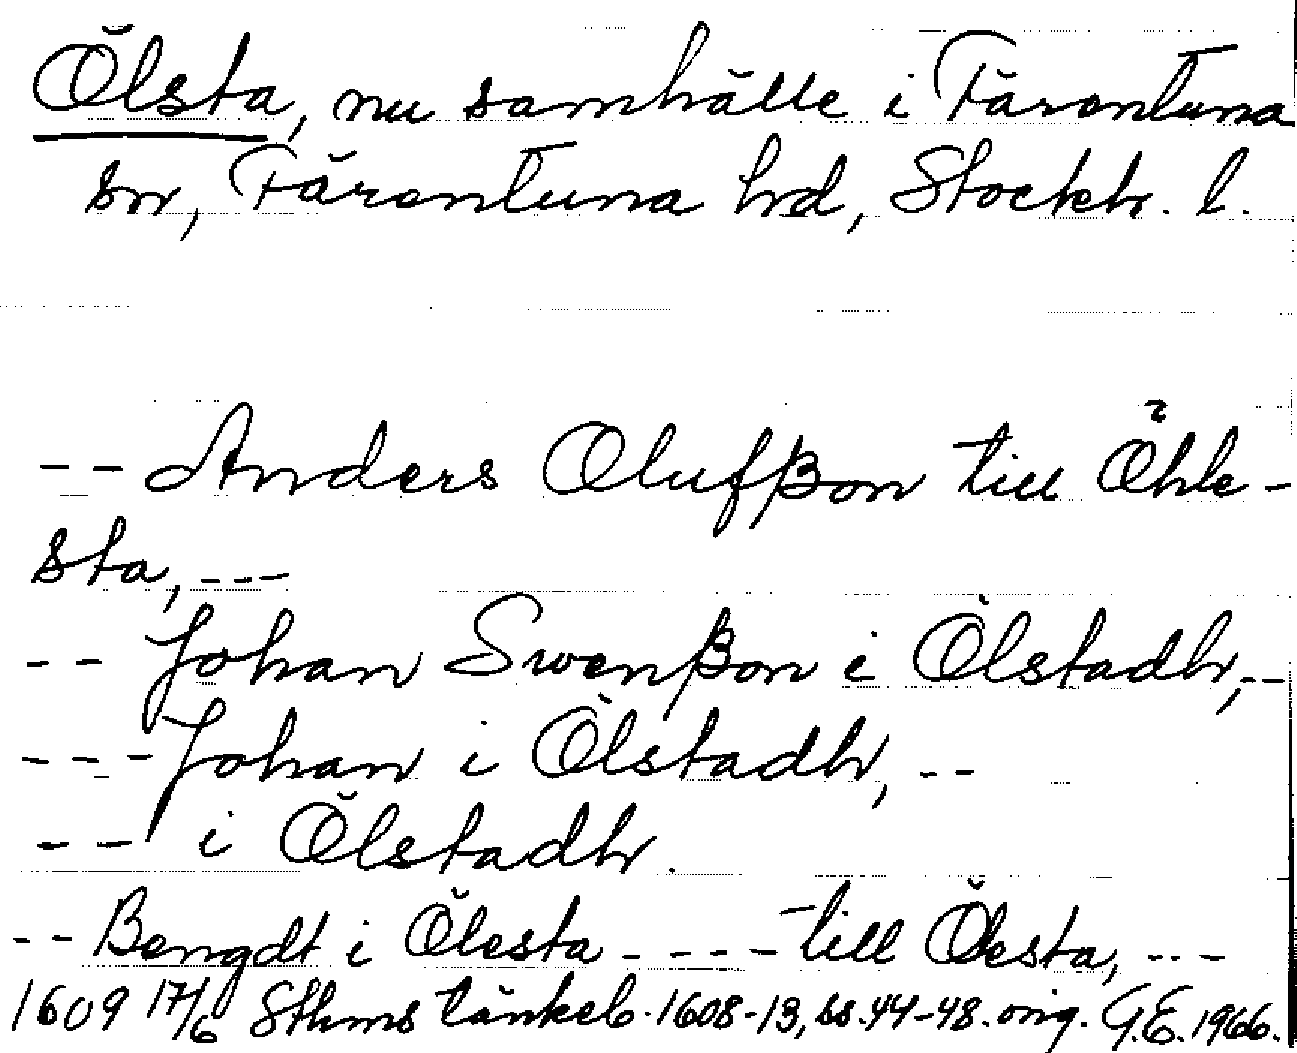 Ölsta, nu samhälle i Färentuna
sn, Färentuna hd, Stockh. l.
-- Anders Olufßon till Öhle-
sta, ---
-- Johan Swenßon i Ölstadh, --
--- Johan i Ölstadh, --
-- i Ölstadh.
-- Bengdt i Ölesta ---- till Ölesta, ---
1609 17/6 Sthms tänkeb. 1608-13, ss. 44-48. orig. G.E. 1966.